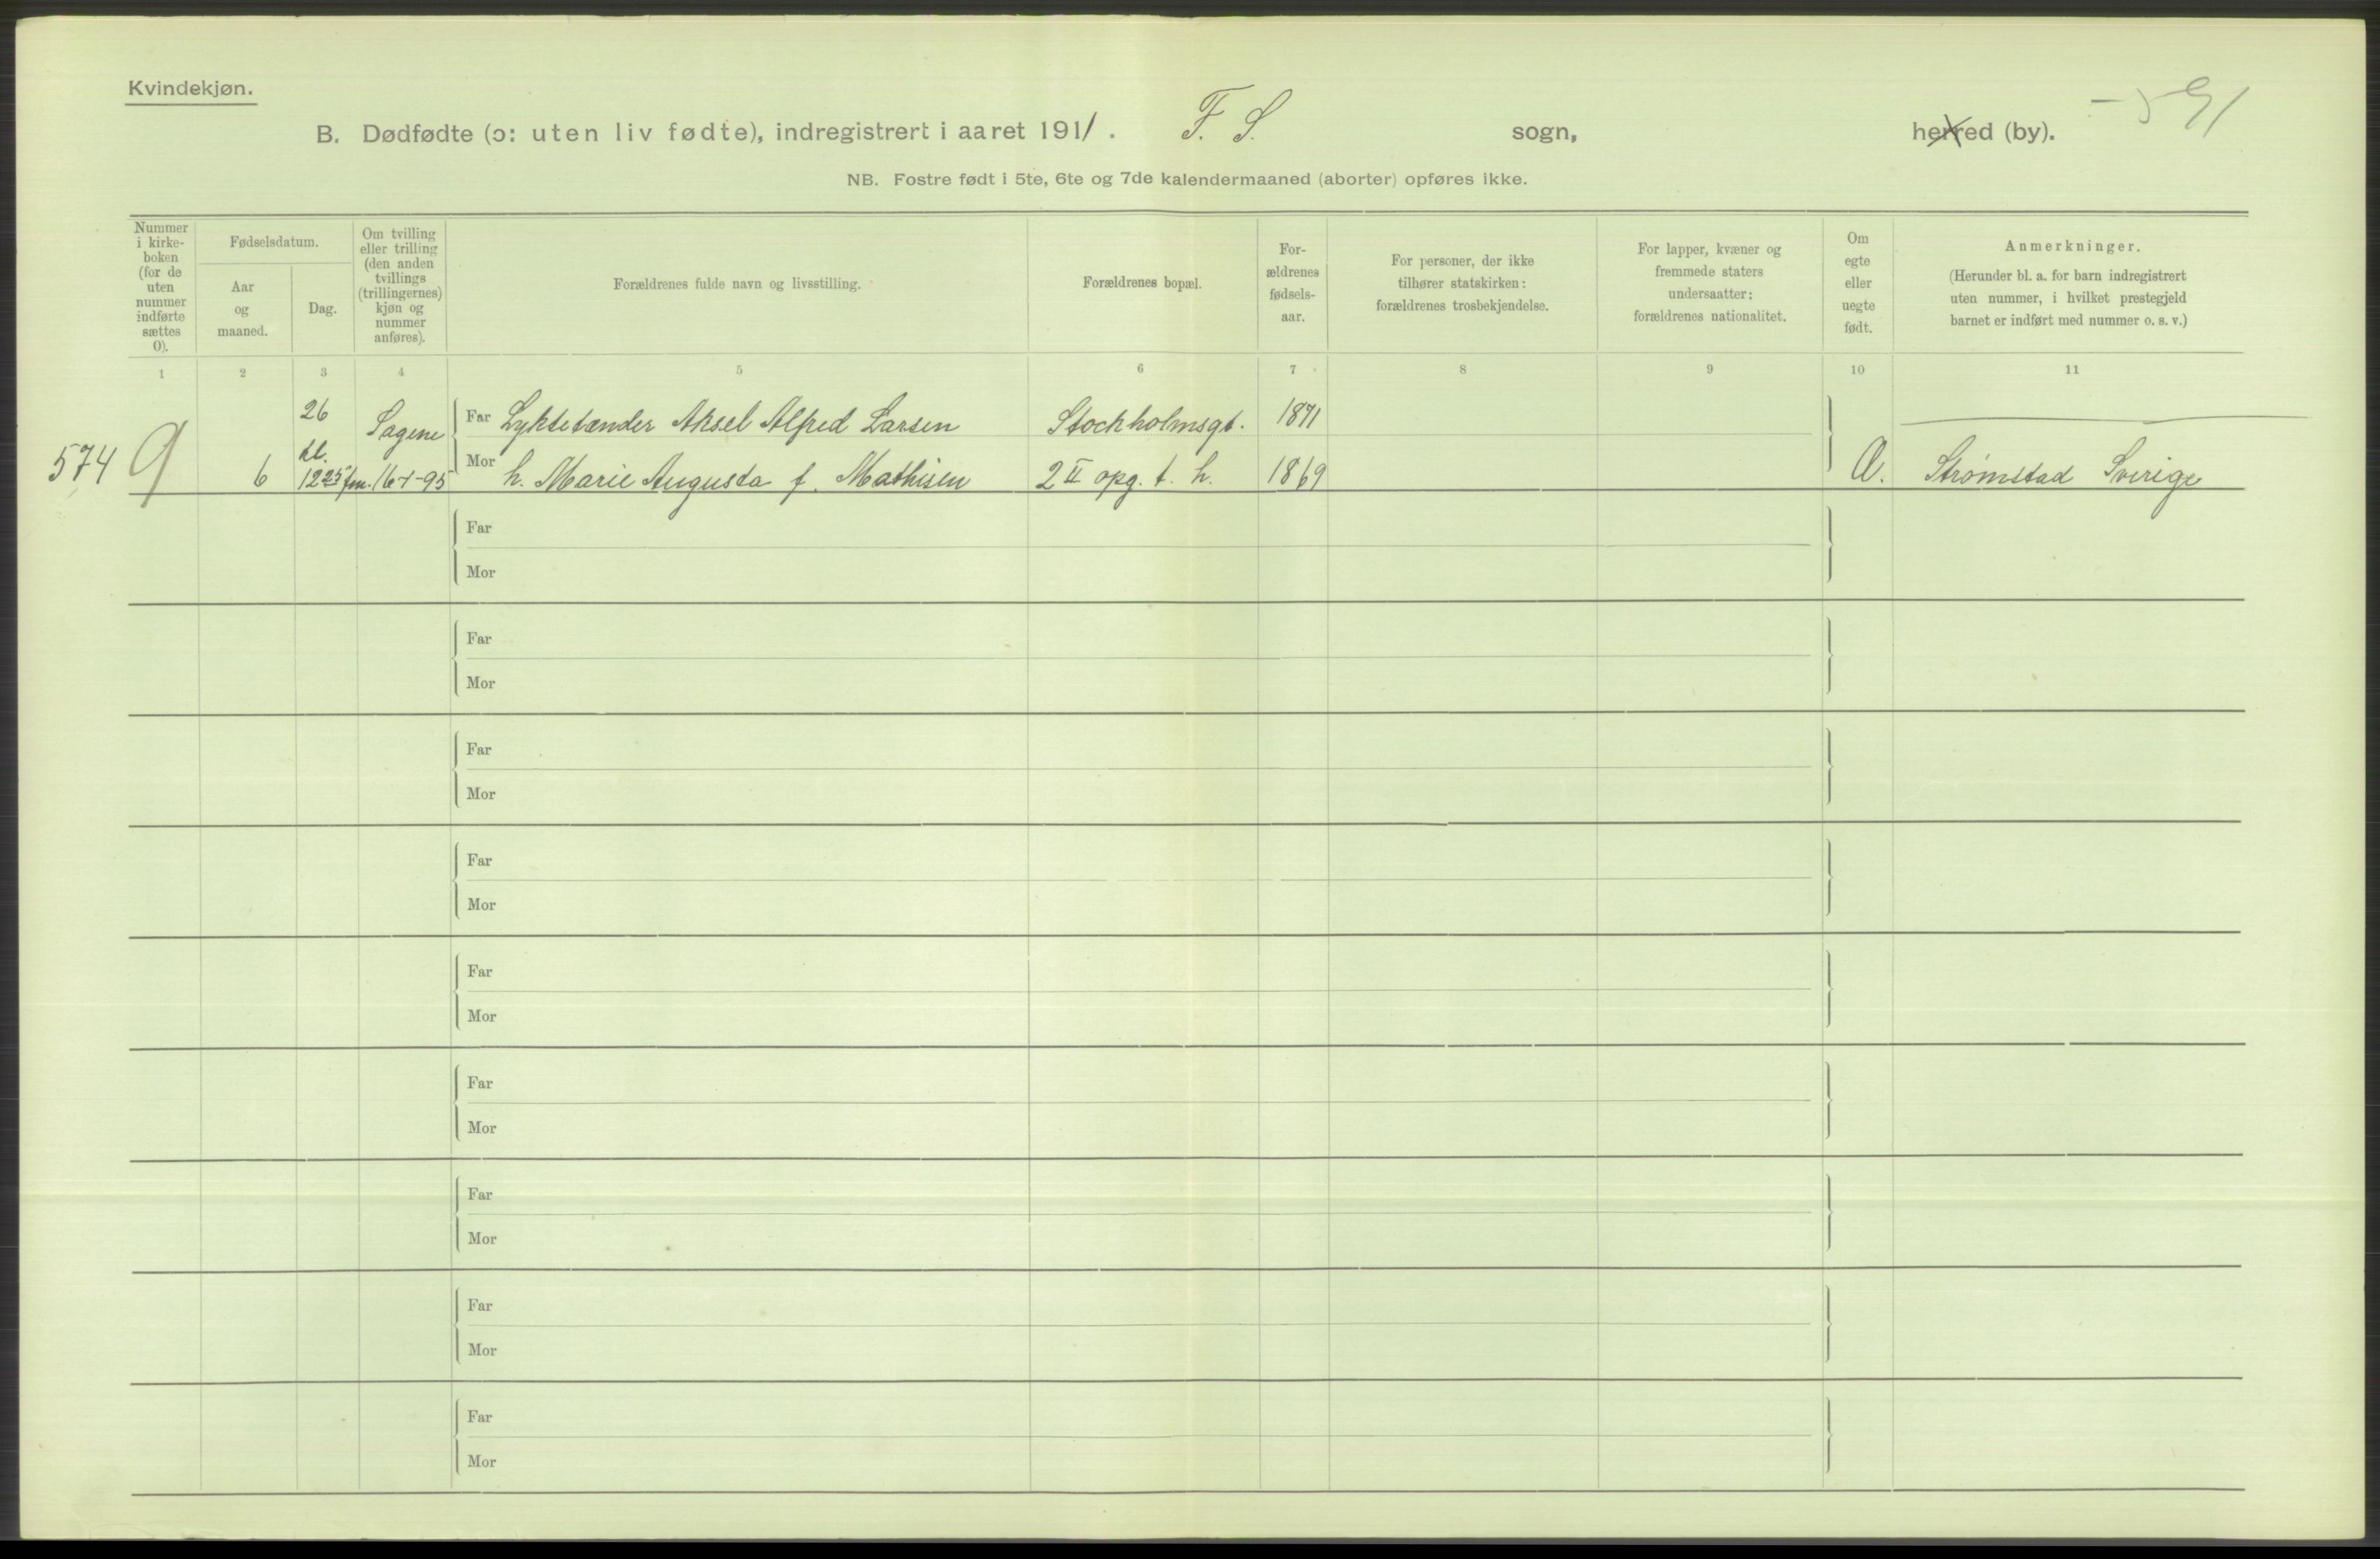 Kvindekjøn.
B. Dødfødte (ɔ: uten liv fødte), indregistrert i aaret 1911. F. S. sogn, herred (by).
NB. Fostre født i 5te, 6te og 7de kalendermaaned (aborter) opføres ikke.
Nummer
i kirke-
boken
(for de
uten
nummer
indførte
sættes
0).
Fødselsdatum.
Aar
og
maaned.
Dag.
Om tvilling
eller trilling
(den anden
tvillings
(trillingernes)
kjøn og
nummer
anføres).
Forældrenes fulde navn og livsstilling.
Forældrenes bopæl.
For-
ældrenes
fødsels-
aar.
For personer, der ikke
tilhører statskirken:
forældrenes trosbekjendelse.
For lapper, kvæner og
fremmede staters
undersaatter:
forældrenes nationalitet.
Om
egte
eller
uegte
født.
Anmerkninger.
(Herunder bl. a. for barn indregistrert
uten nummer, i hvilket prestegjeld
barnet er indført med nummer o. s. v.)
1 2 3 4 5 6 7 8 9 10 11
26 Sagene Far Lyktetænder Aksel Alfred Larsen Stockholmsgt. 1871
kl.
574 9 6 12 25 fm. 16-1-95 Mor h. Marie Augusta f. Mathisen 2 II opg. t. h. 1869 Æ. Strømstad Sverige
Far
Mor
Far
Mor
Far
Mor
Far
Mor
Far
Mor
Far
Mor
Far
Mor
Far
Mor
Far
Mor